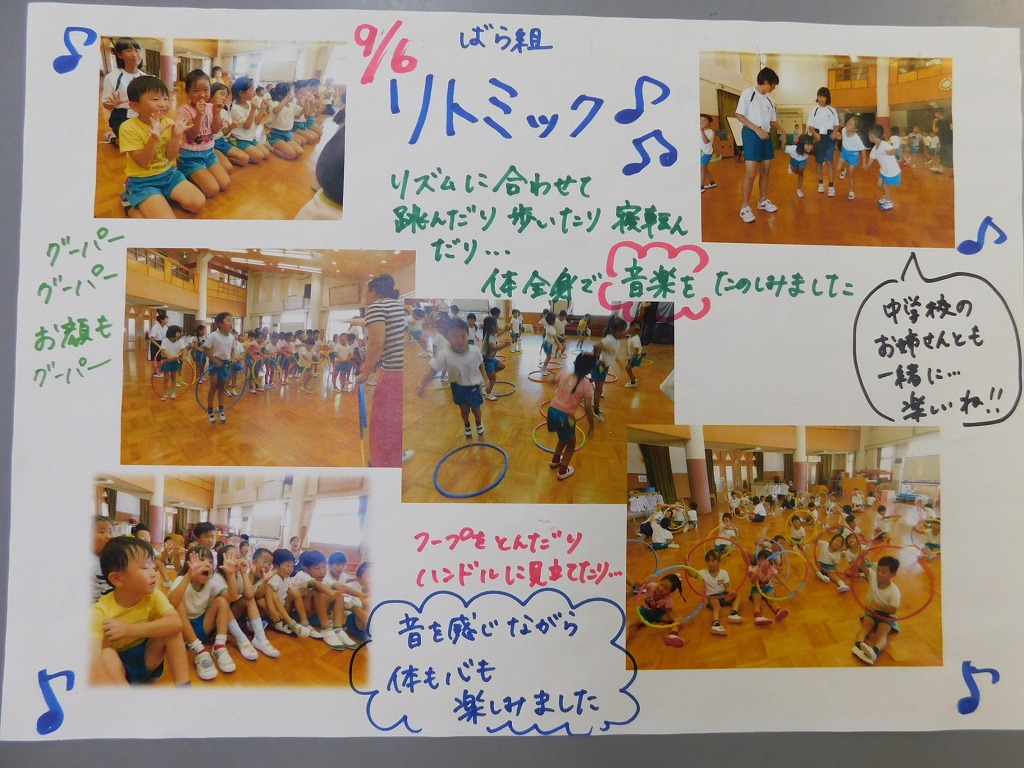 9/6
ばら組
リトミック
リズムに合わせて
跳んだり歩いたり寝転ん
だり…
体全身で音楽をたのしみました
グーパー
グーパー
お顔も
グーパー
中学校の
お姉さんとも
一緒に…
楽しいね!!
フープをとんだり
ハンドルに見立てたり…
音を感じながら
体も心も
楽しみました